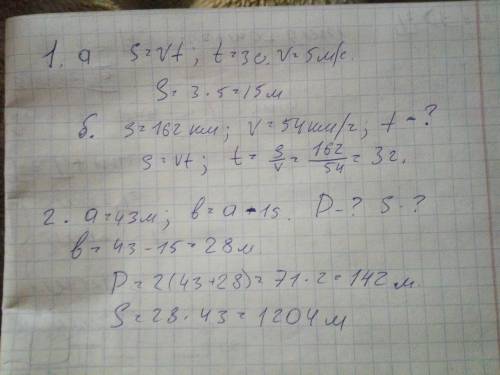 1. а S=Vt; t=3с, V=5м/с.
S= 3·5=15м
б. S=162 км; V=54км/г; t-?
S=Vt; t= S/V = 162/54 = 3г.
2. a=43м; в=а-15. P-? S-?
в=43-15=28м
P=2(43+28)=71·2=142 м
S=28·43=1204м